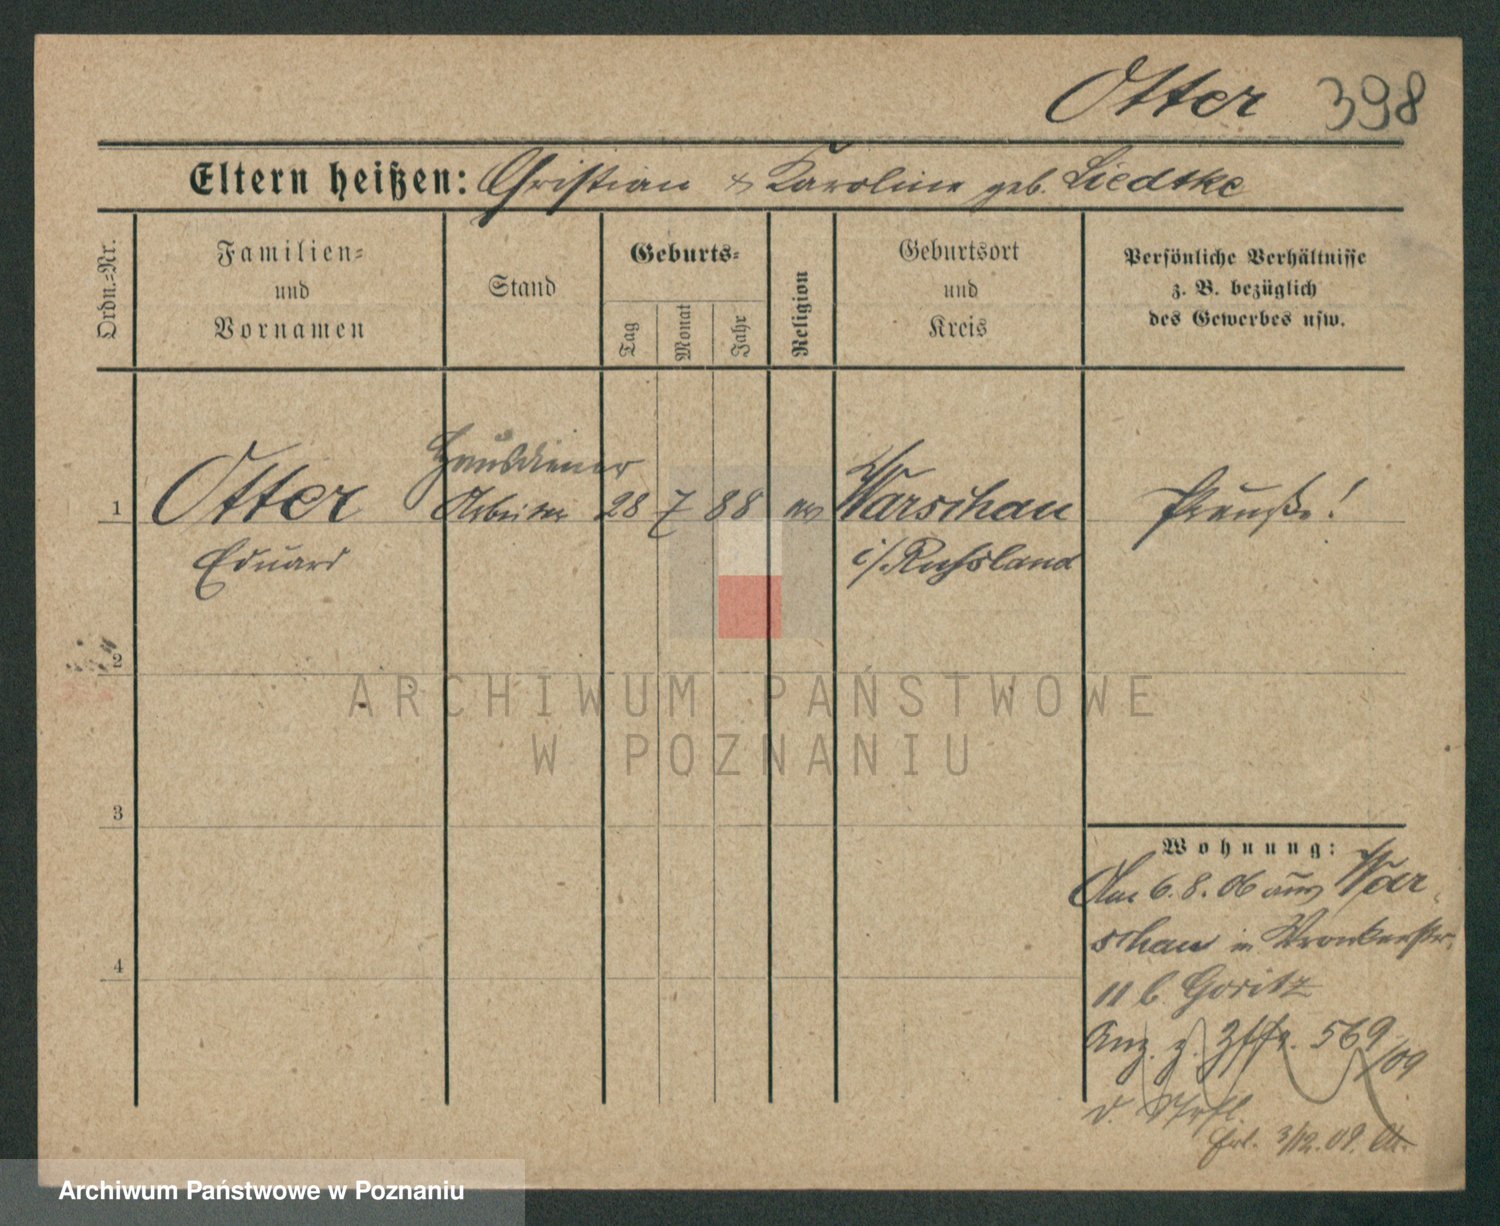 Otter 398
Eltern heißen: Christian & Karoline geb. Liedtke
Ordn.-Nr.
Familien-
und
Vornamen
Stand
Geburts-
Tag
Monat
Jahr
Religion
Geburtsort
und
Kreis
Persönliche Verhältnisse
z. B. bezüglich
des Gewerbes usw.
Hausdiener
1 Otter Arbeiter 28 7 88 ev Warschau Preuße!
Eduard i/Russland
2
ARCHIWUM PAŃSTWOWE
W POZNANIU
3
Wohnung:
Am 6.8.06 aus War-
schau in Wronkerstr.
4
11 b. Goritz
Anz. z. 569
/09
3/12.09.
Archiwum Państwowe w Poznaniu